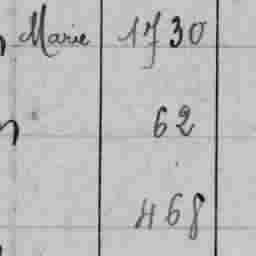 Marie 1730
62
468